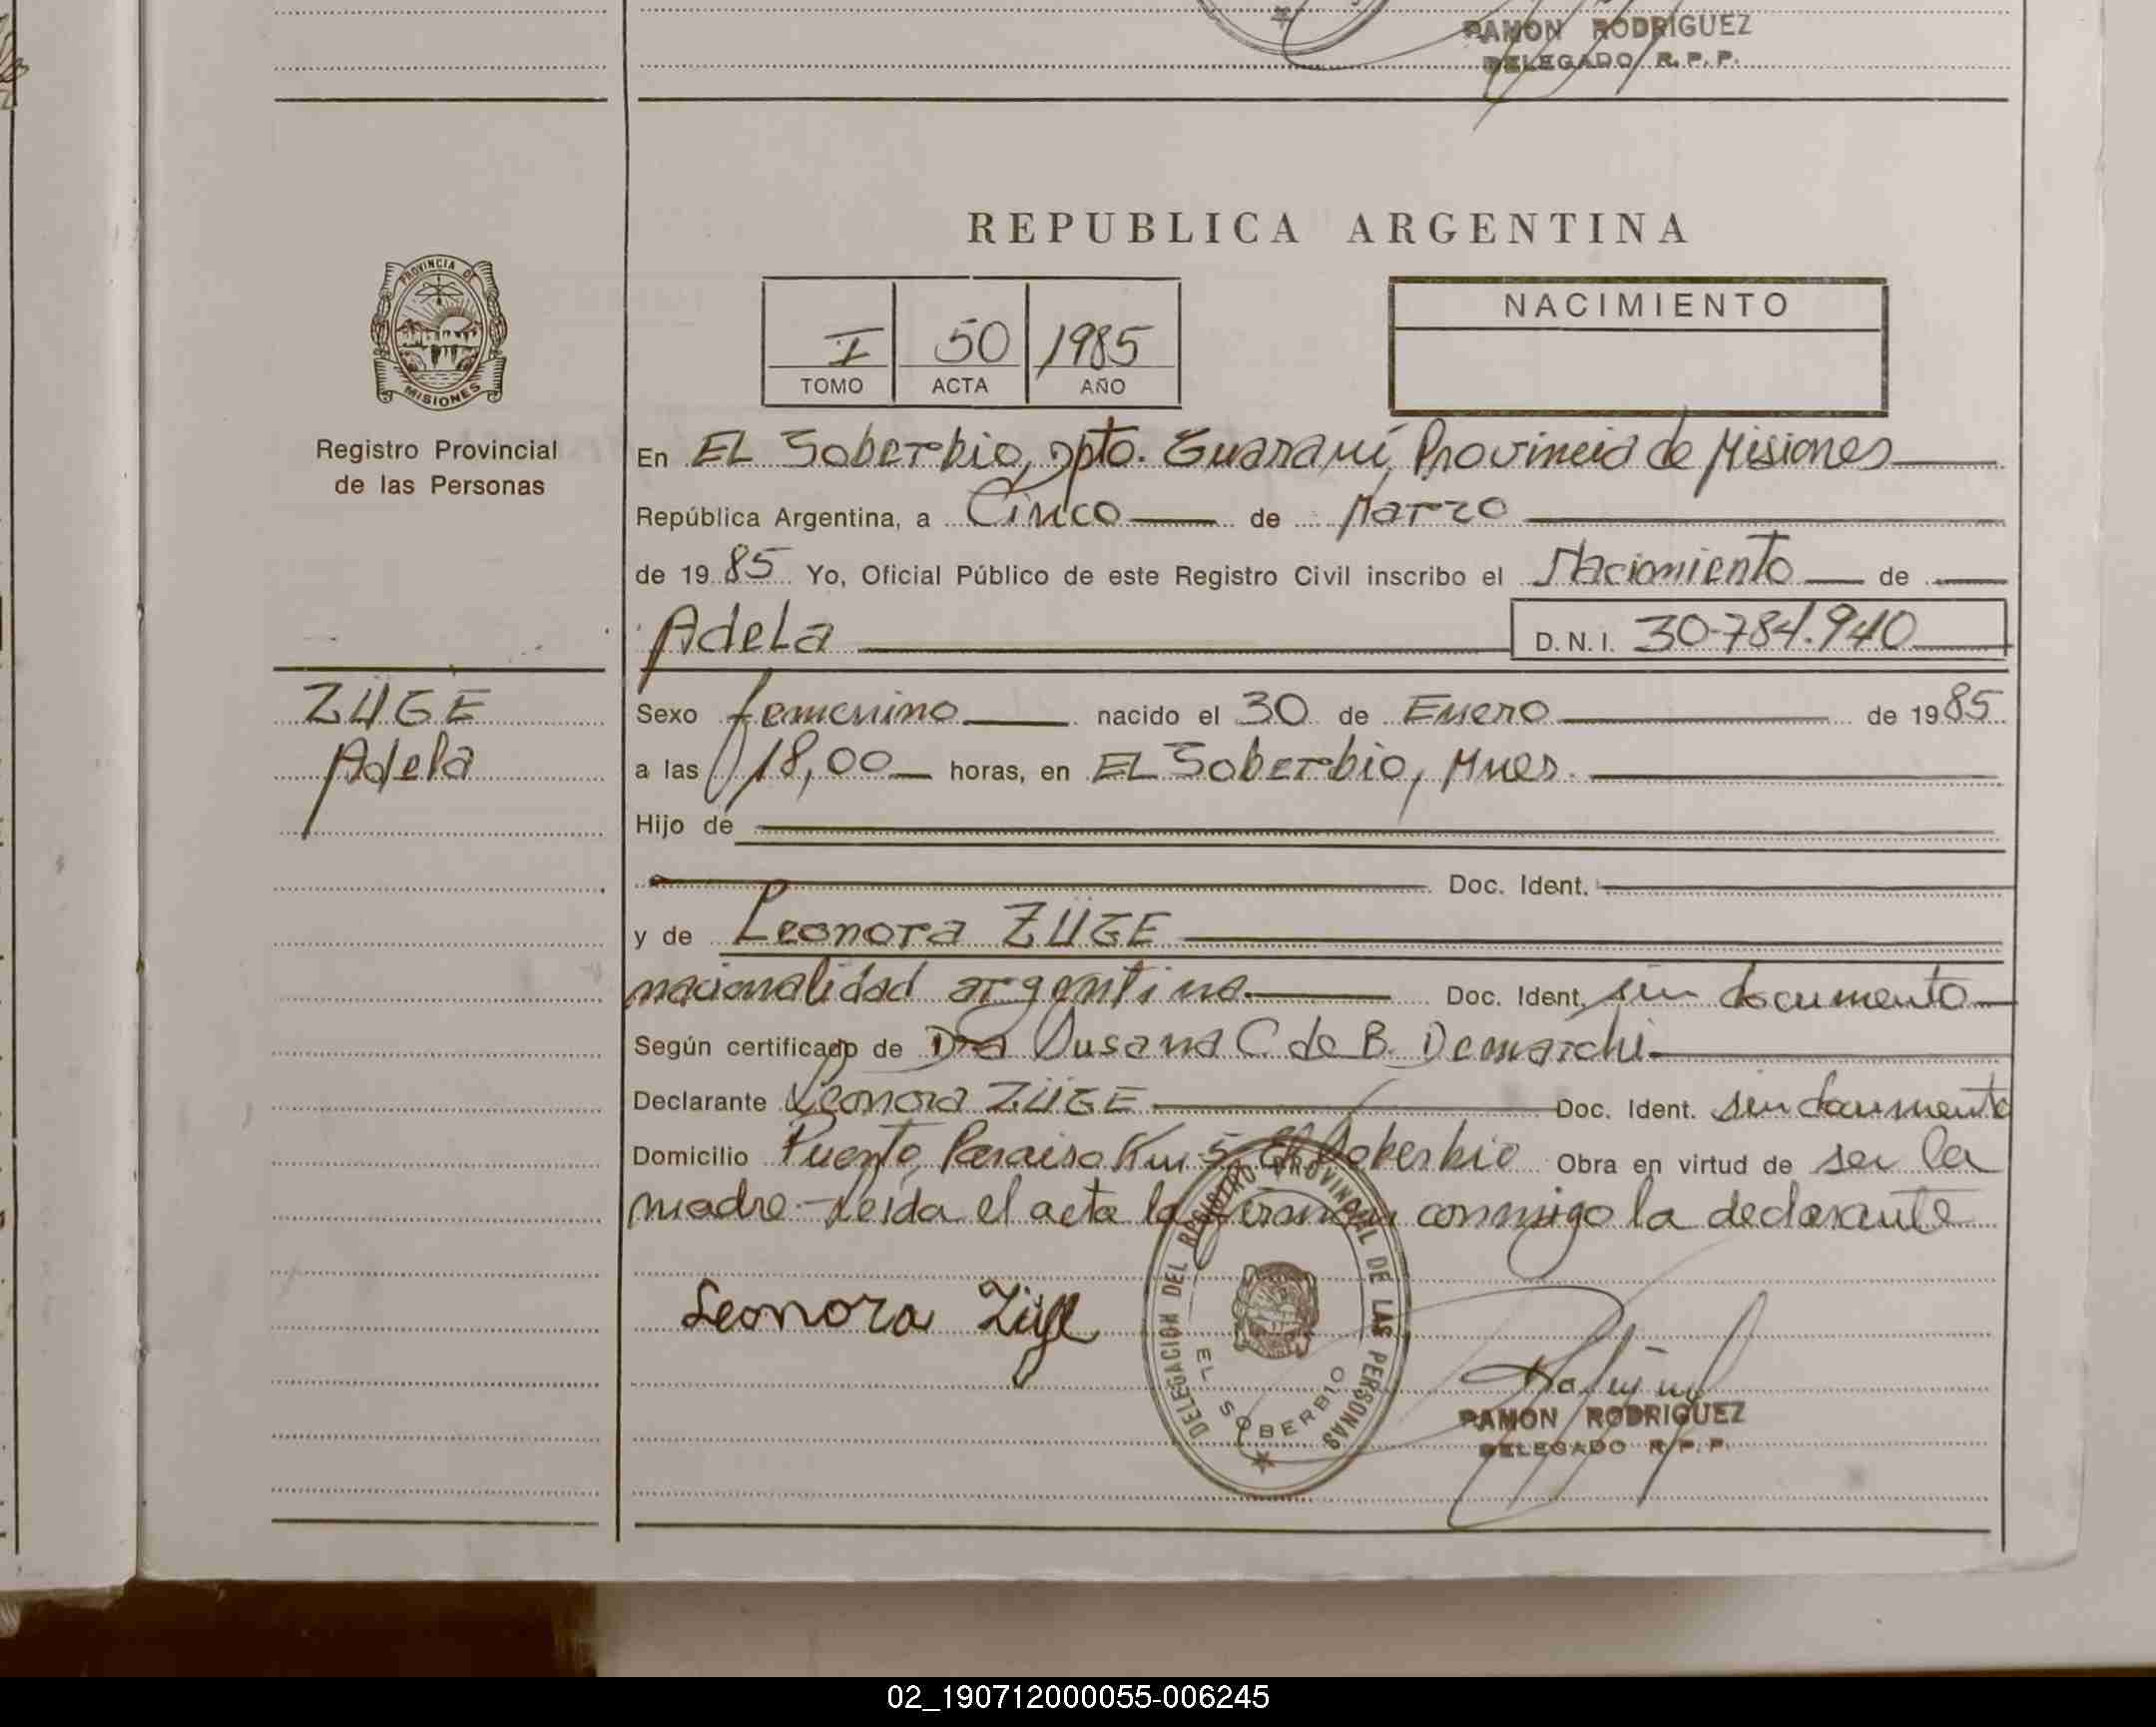 RAMON RODRIGUEZ
DELEGADO R.P.P.
REPUBLICA ARGENTINA
PROVINCIA DE
MISIONES
Registro Provincial
de las Personas
I 50 1985
TOMO ACTA AÑO
NACIMIENTO
En EL Soberbio, Dpto. Guaraní, Provincia de Misiones
República Argentina, a Cinco de Marzo
de 1985 Yo, Oficial Público de este Registro Civil inscribo el Nacimiento de
Adela D.N.I. 30.784.940
ZÜGE
Adela
Sexo femenino nacido el 30 de Enero de 1985
a las 18,00 horas, en EL Soberbio, Mnes.
Hijo de
Doc. Ident.
y de Leonora ZÜGE
nacionalidad argentina. Doc. Ident. sin documento
Según certificado de Dra Susana C de B. Demarchi
Declarante Leonora ZÜGE Doc. Ident. sin documento
Domicilio Puente Paraiso Km 5 El Soberbio Obra en virtud de ser la
madre - Leída el acta la firman conmigo la declarante
Leonora Züge
DELEGACION DEL REGISTRO PROVINCIAL DE LAS PERSONAS
EL SOBERBIO
RAMON RODRIGUEZ
DELEGADO R.P.P.
02_190712000055-006245